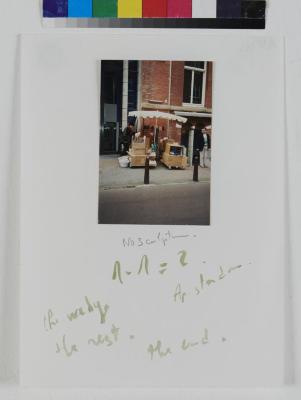 No Sculpture.
1-1 = 2.
Amsterdam.
the
the rest.
the end.